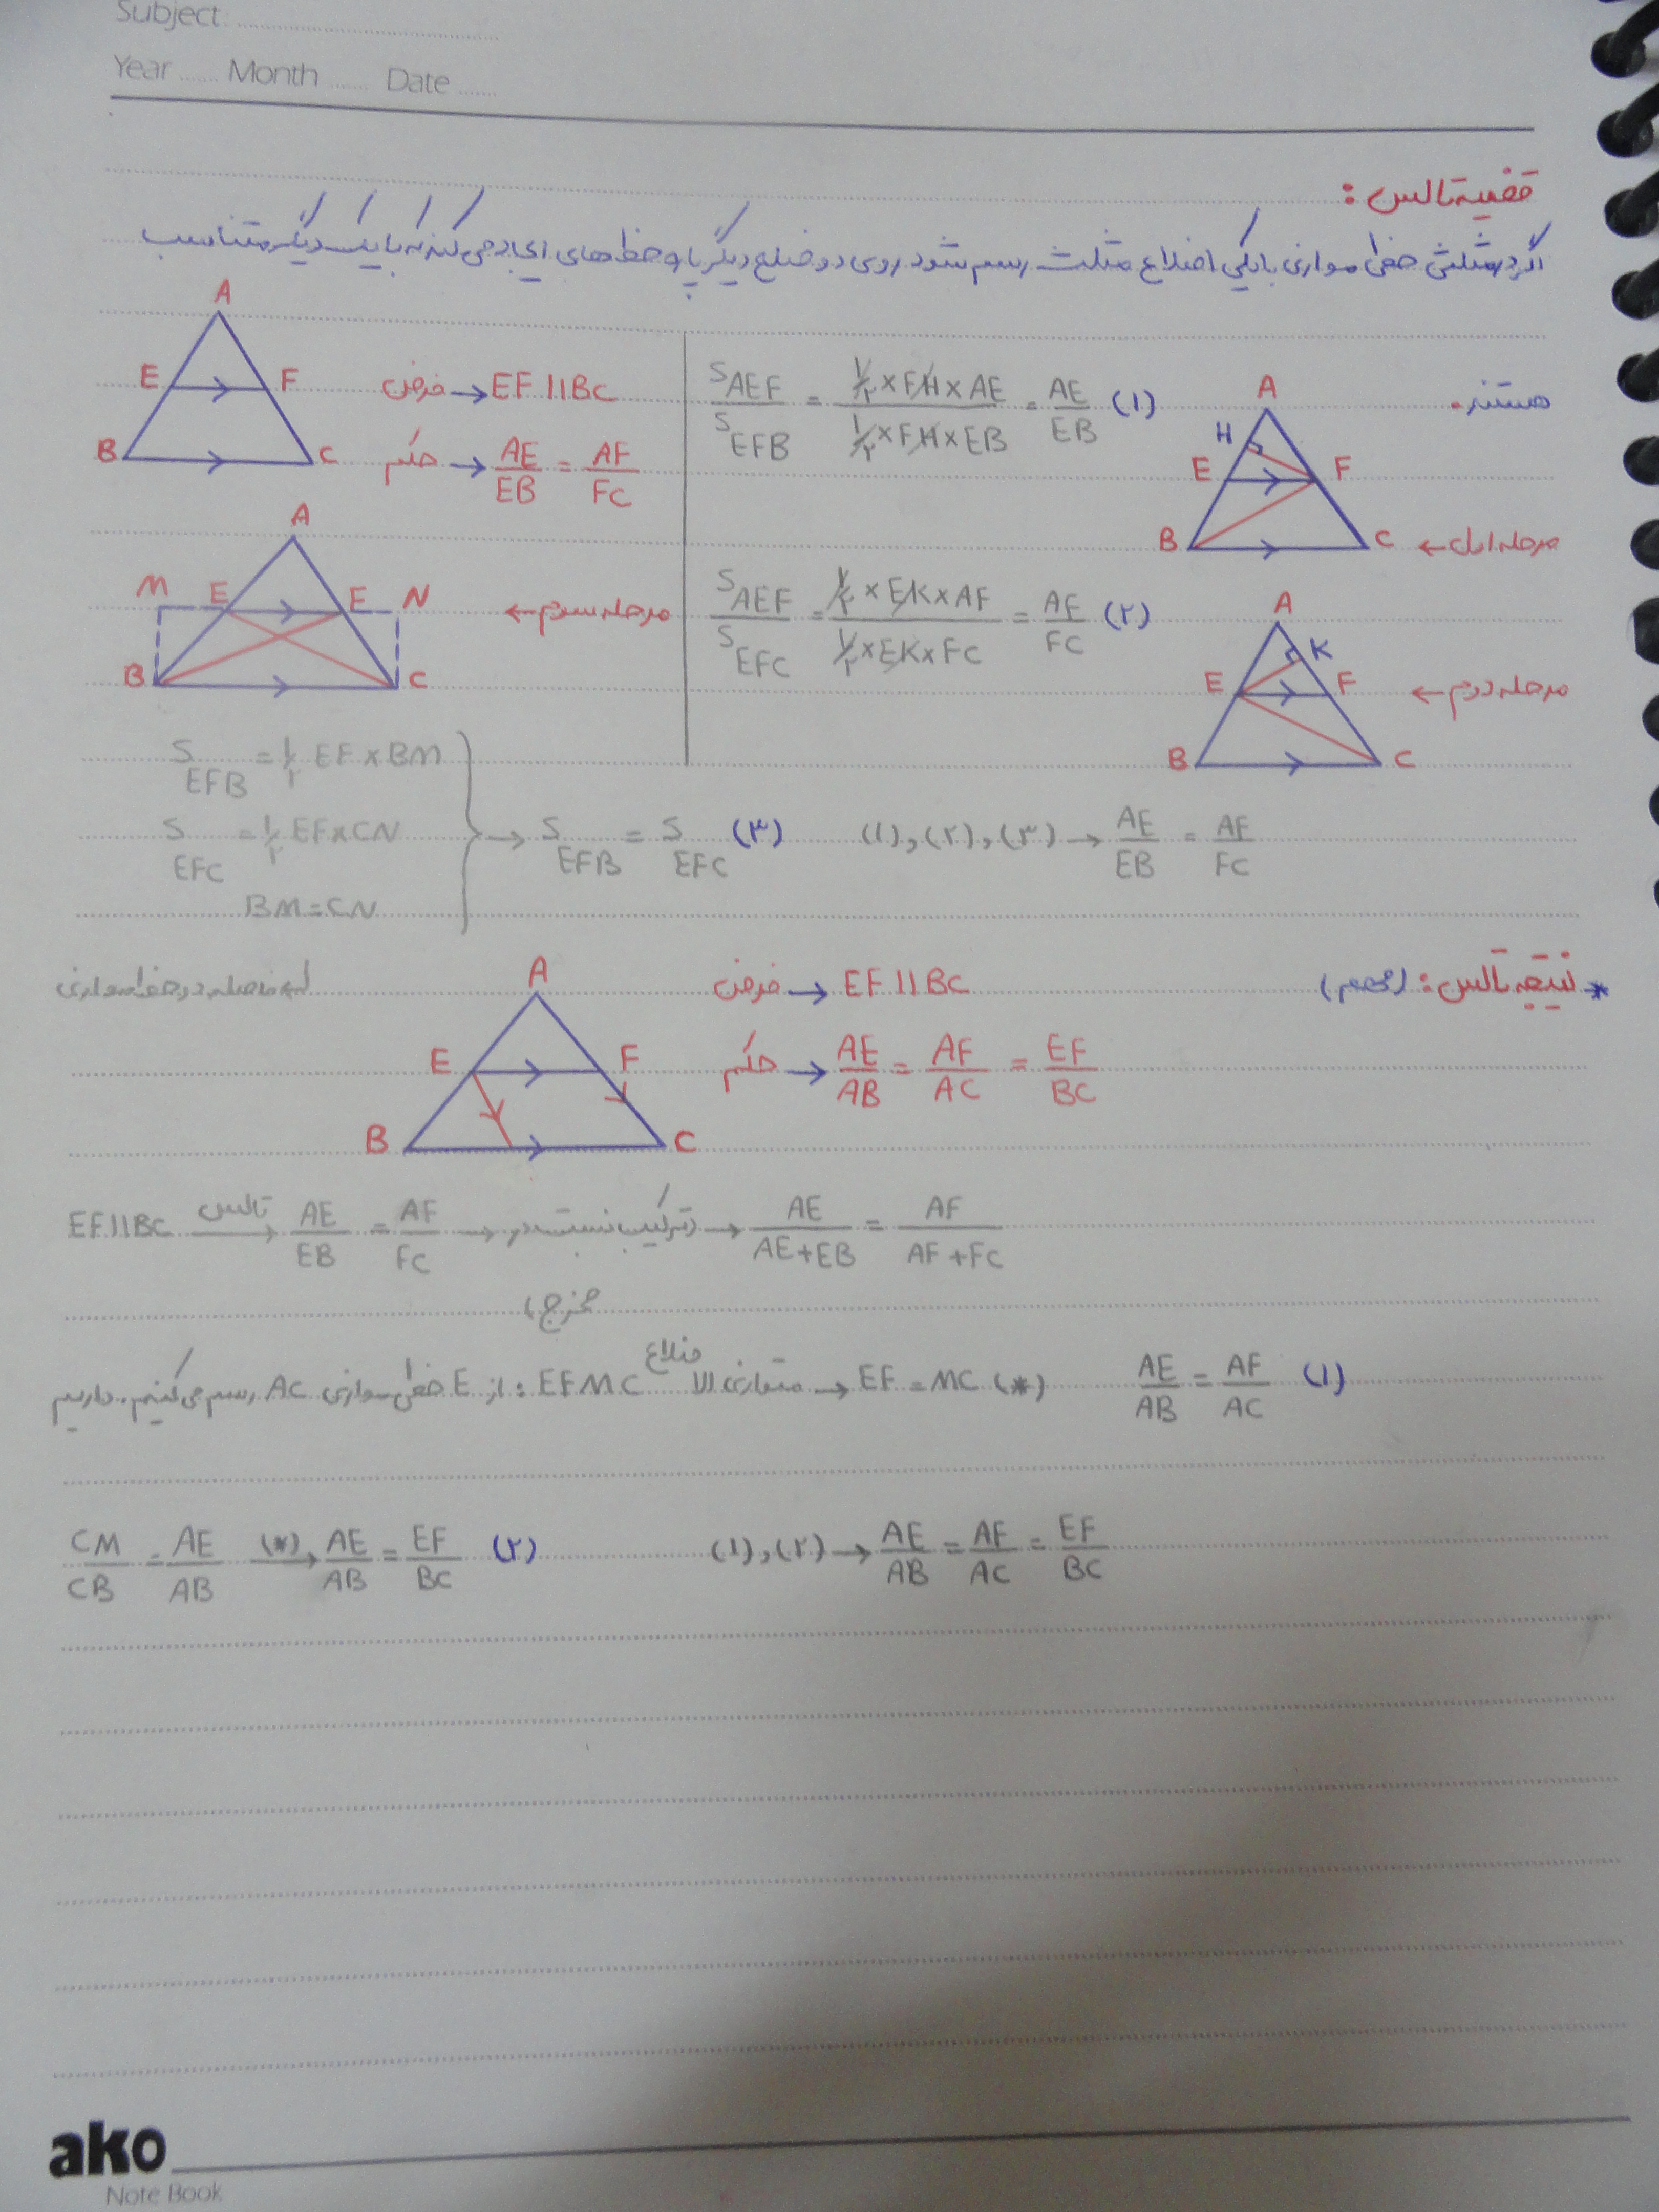 Subject
Year Month Date
قضیه تالس :
اگر در مثلثی خطی موازی با یکی اضلاع مثلث رسم شود روی دو ضلع دیگر پاره خط های ایجاد می کند که با یک دیگر متناسب
هستند.
A
E F
B C
فرض → EF || BC
حکم → AE/EB = AF/FC
S AEF / S EFB = (1/٢ × FH × AE) / (1/٢ × FH × EB) = AE/EB (١)
A
H
E F
B C
مرحله اول ←
A
M E E N
B C
مرحله سوم ←
S AEF / S EFC = (1/٢ × EK × AF) / (1/٢ × EK × FC) = AF/FC (٢)
A
K
E F
B C
مرحله دوم ←
S EFB = 1/٢ EF × BM
S EFC = 1/٢ EF × CN
BM = CN
→ S EFB = S EFC (٣)
(١), (٢), (٣) → AE/EB = AF/FC
فاصله دو خط موازی
* نتیجه تالس : (مهم)
A
E F
B C
فرض → EF || BC
حکم → AE/AB = AF/AC = EF/BC
EF || BC تالس → AE/EB = AF/FC → ترکیب نسبت در → AE/(AE+EB) = AF/(AF+FC)
مخرج)
از E خطی موازی AC رسم می کنیم. داریم : EFMC متوازی الا ضلاع → EF = MC (*)
AE/AB = AF/AC (١)
CM/CB = AE/AB (*)→ AE/AB = EF/BC (٢)
(١), (٢) → AE/AB = AF/AC = EF/BC
ako
Note Book